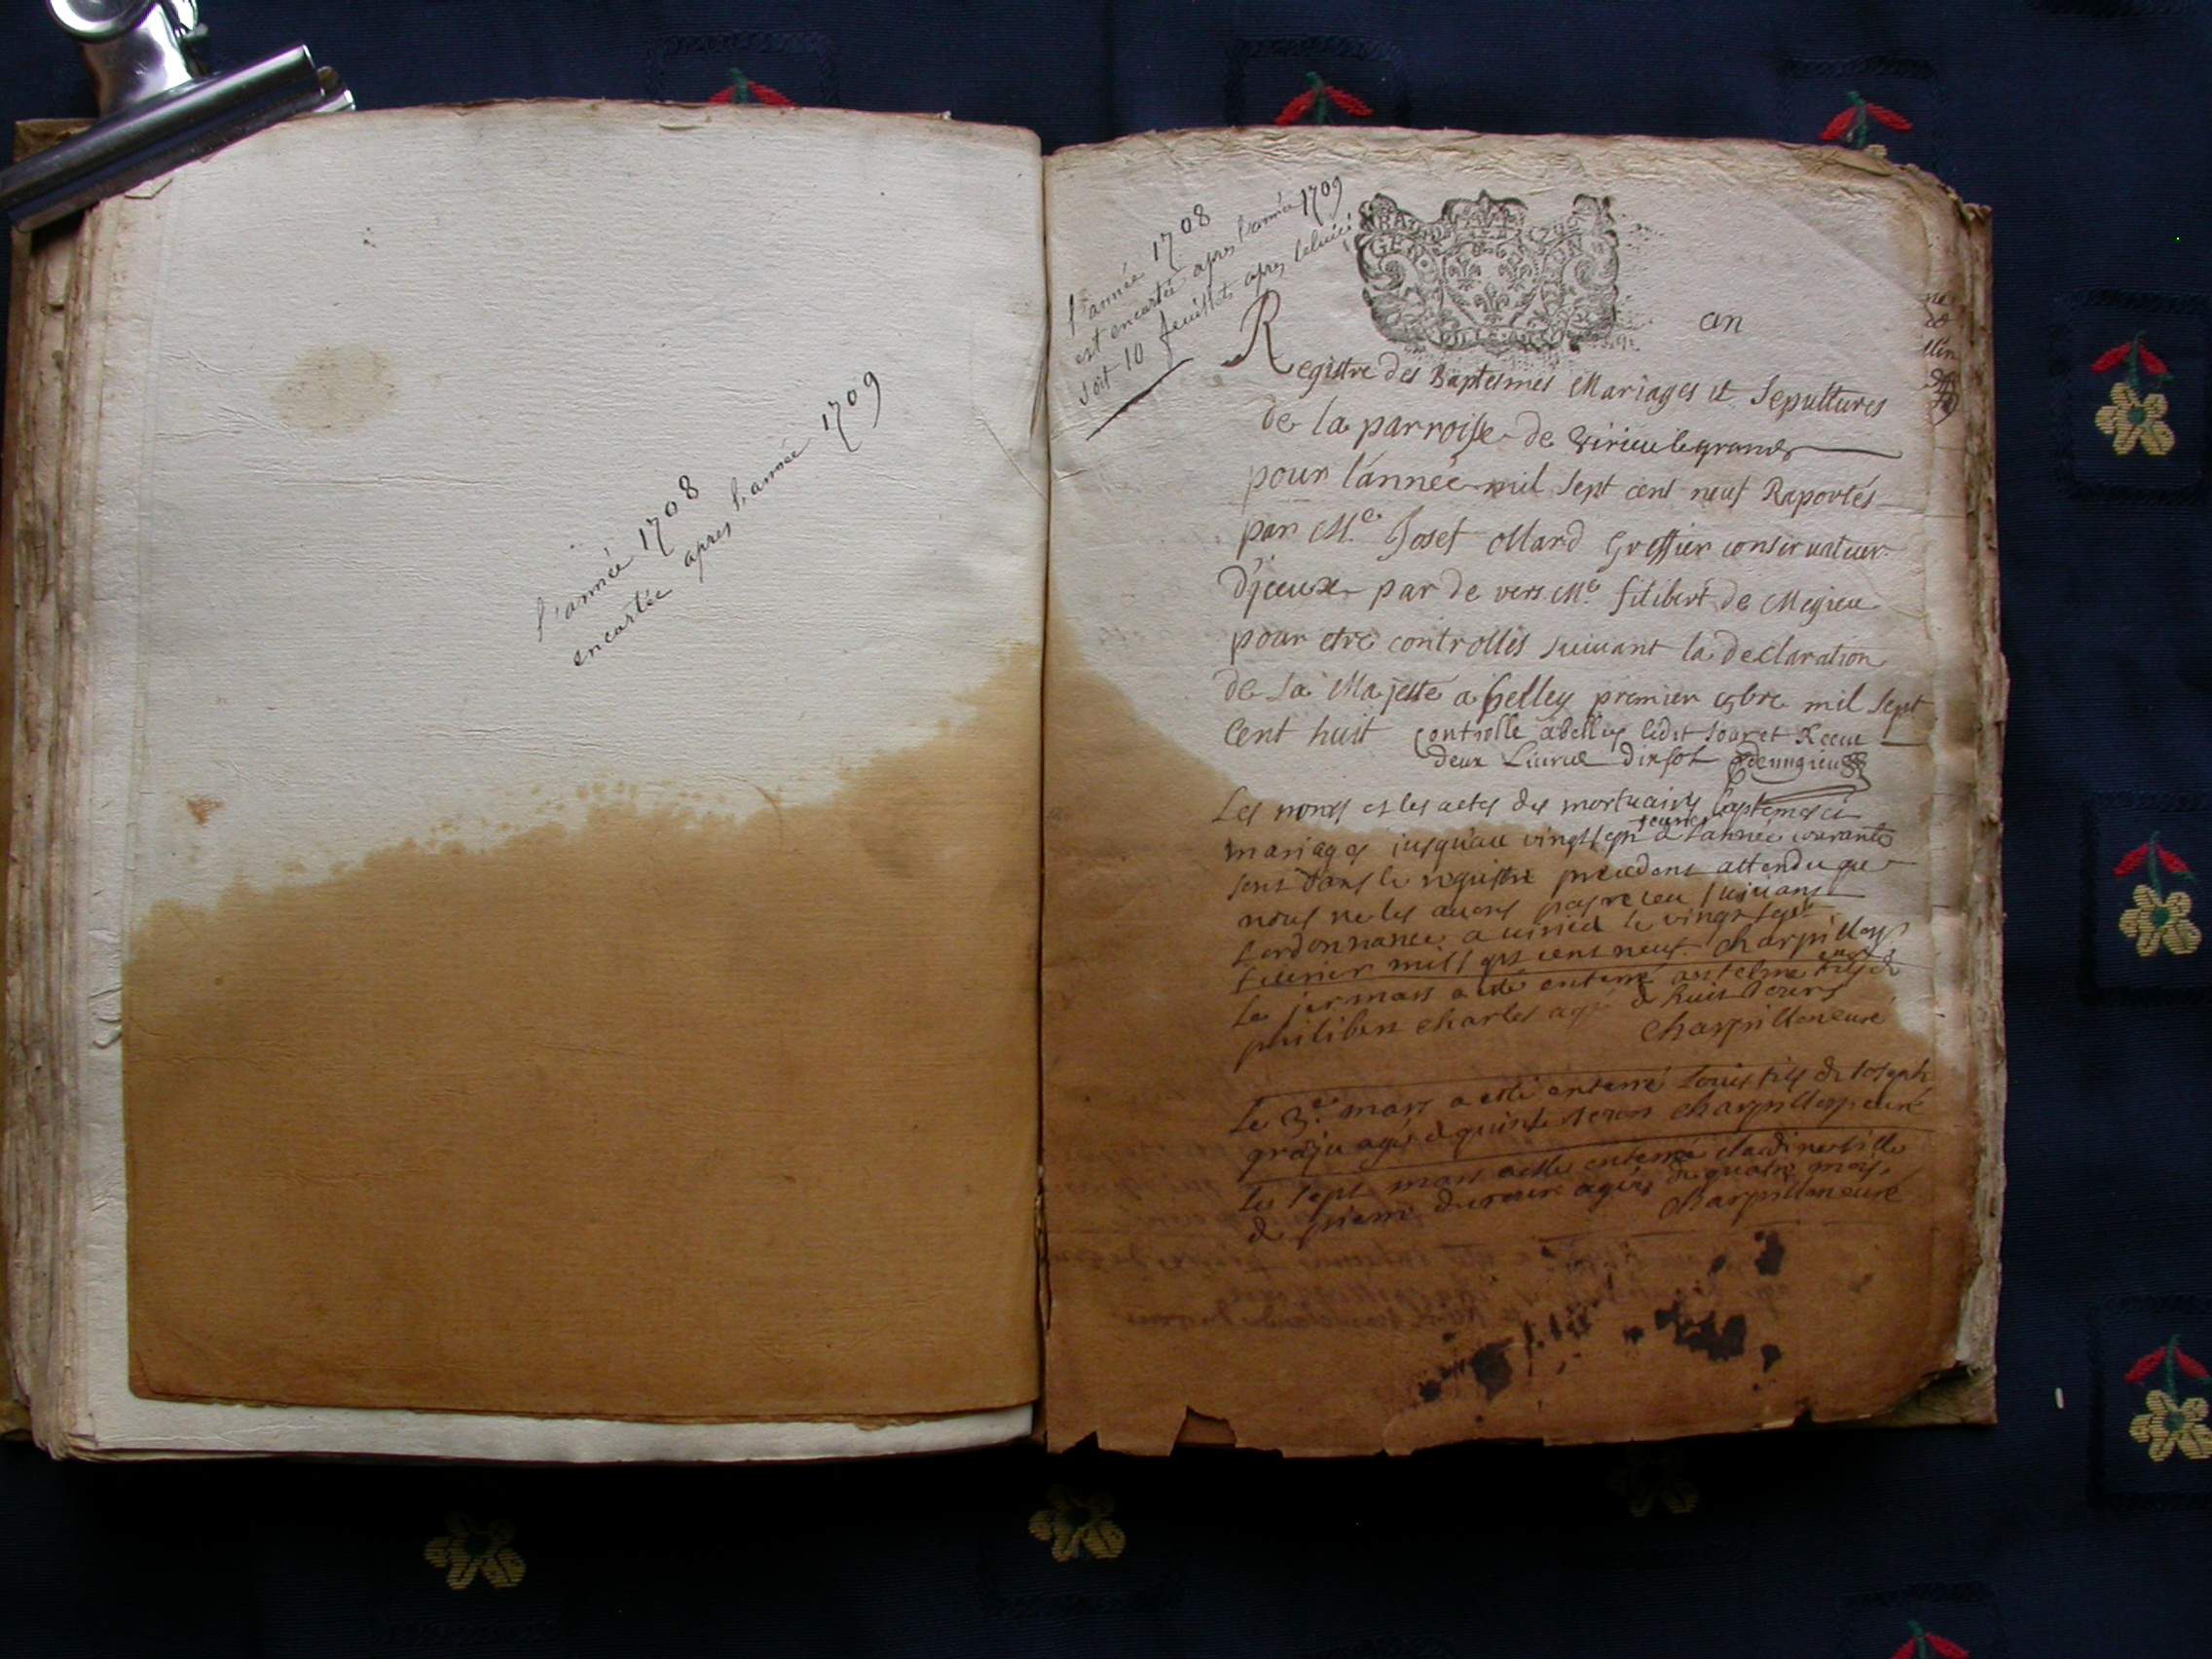 l'année 1708
encartée apres l'année 1709
l'année 1708
est encartée apres l'année 1709
soit 10 feuillets apres celui ci
an
Registre des Baptesmes Mariages et Sepultures
de la parroisse de virieu le grand
pour l'année mil sept cent neuf Raportés
par Me Josef Mard Greffier conservateur
d'jceux par de vers Me filibert de Megieu
pour etre controllés suiuant la declaration
de sa Majesté a belley premier mil sept
cent huit controllé a belley ledit jour et Receu
deux Liures dix sol demigieu
Les noms et les actes des mortuaires baptemes et
mariages jusqu'au vingt sept feurier de l'année courante
sont dans le registre precedent attendu que
nous ne les auons pas receu suiuant
l'ordonnance a virieu le vingt sept
feurier mil sept cent neuf. Charpillon curé
Le jer mars a esté enterré antelme fils de
philibert charles agé de huit jours
Charpillon curé
Le 3e mars a esté enterré Louis fils de Joseph
agé de quinse jours Charpillon curé
Le sept mars a esté enterrée claudine fille
de pierre agée de quatre mois
Charpillon curé